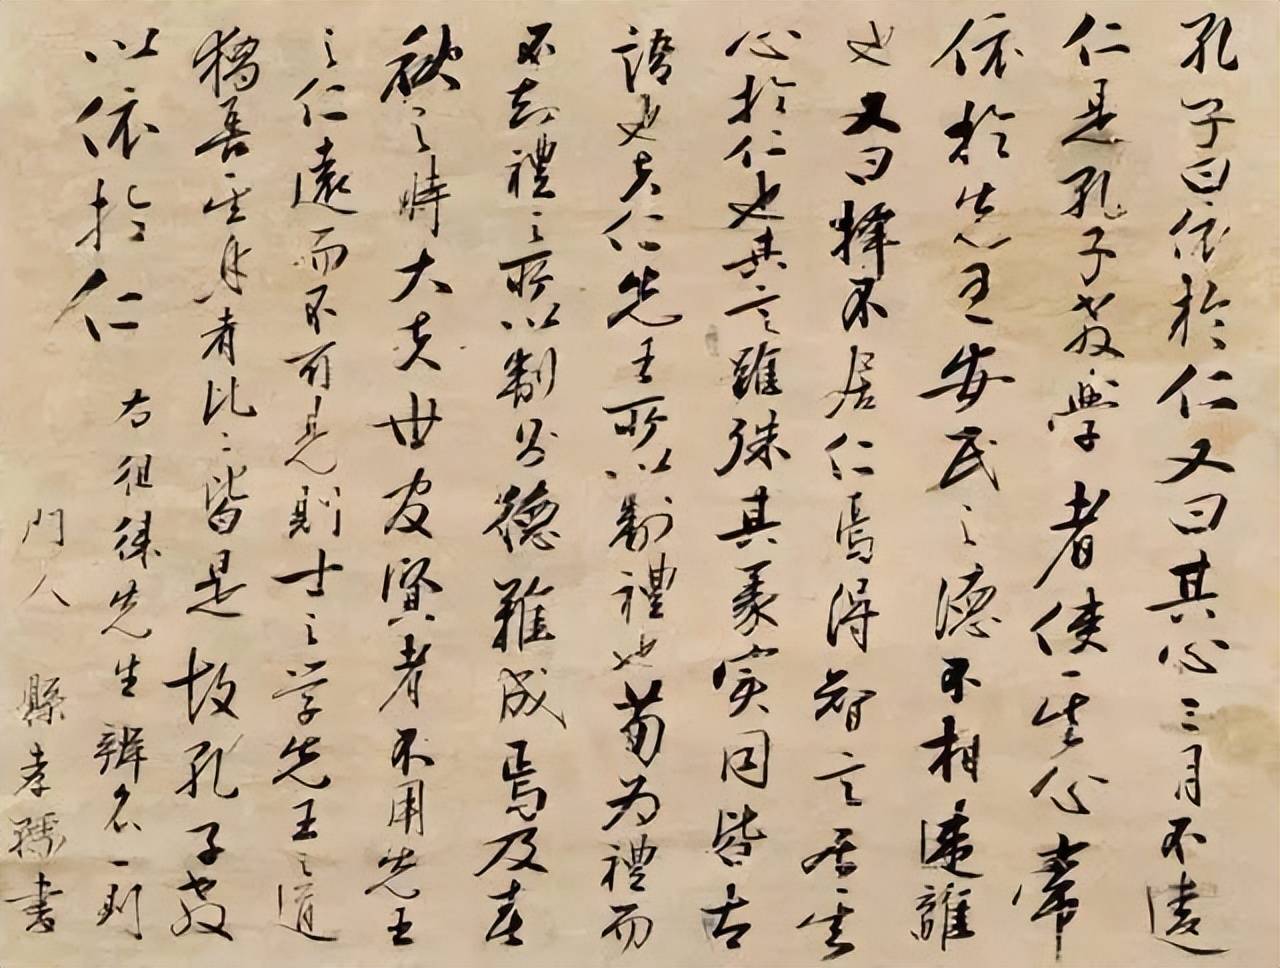 孔子曰依於仁又曰其心三月不違
仁是孔子教學者使其心常
依於先王安民之德不相違離
也又曰擇不居仁焉得智言居其
心於仁也其言雖殊其義實同皆古
語也夫仁先王所以制禮也苟為禮而
不知禮之所以制則德難成焉及春
秋之時大夫世官賢者不用先王
之仁遠而不可見則士之學先王之道
獨善其身者比比皆是故孔子教
以依於仁
右徂徠先生辨名一則
門人 縣孝孺書